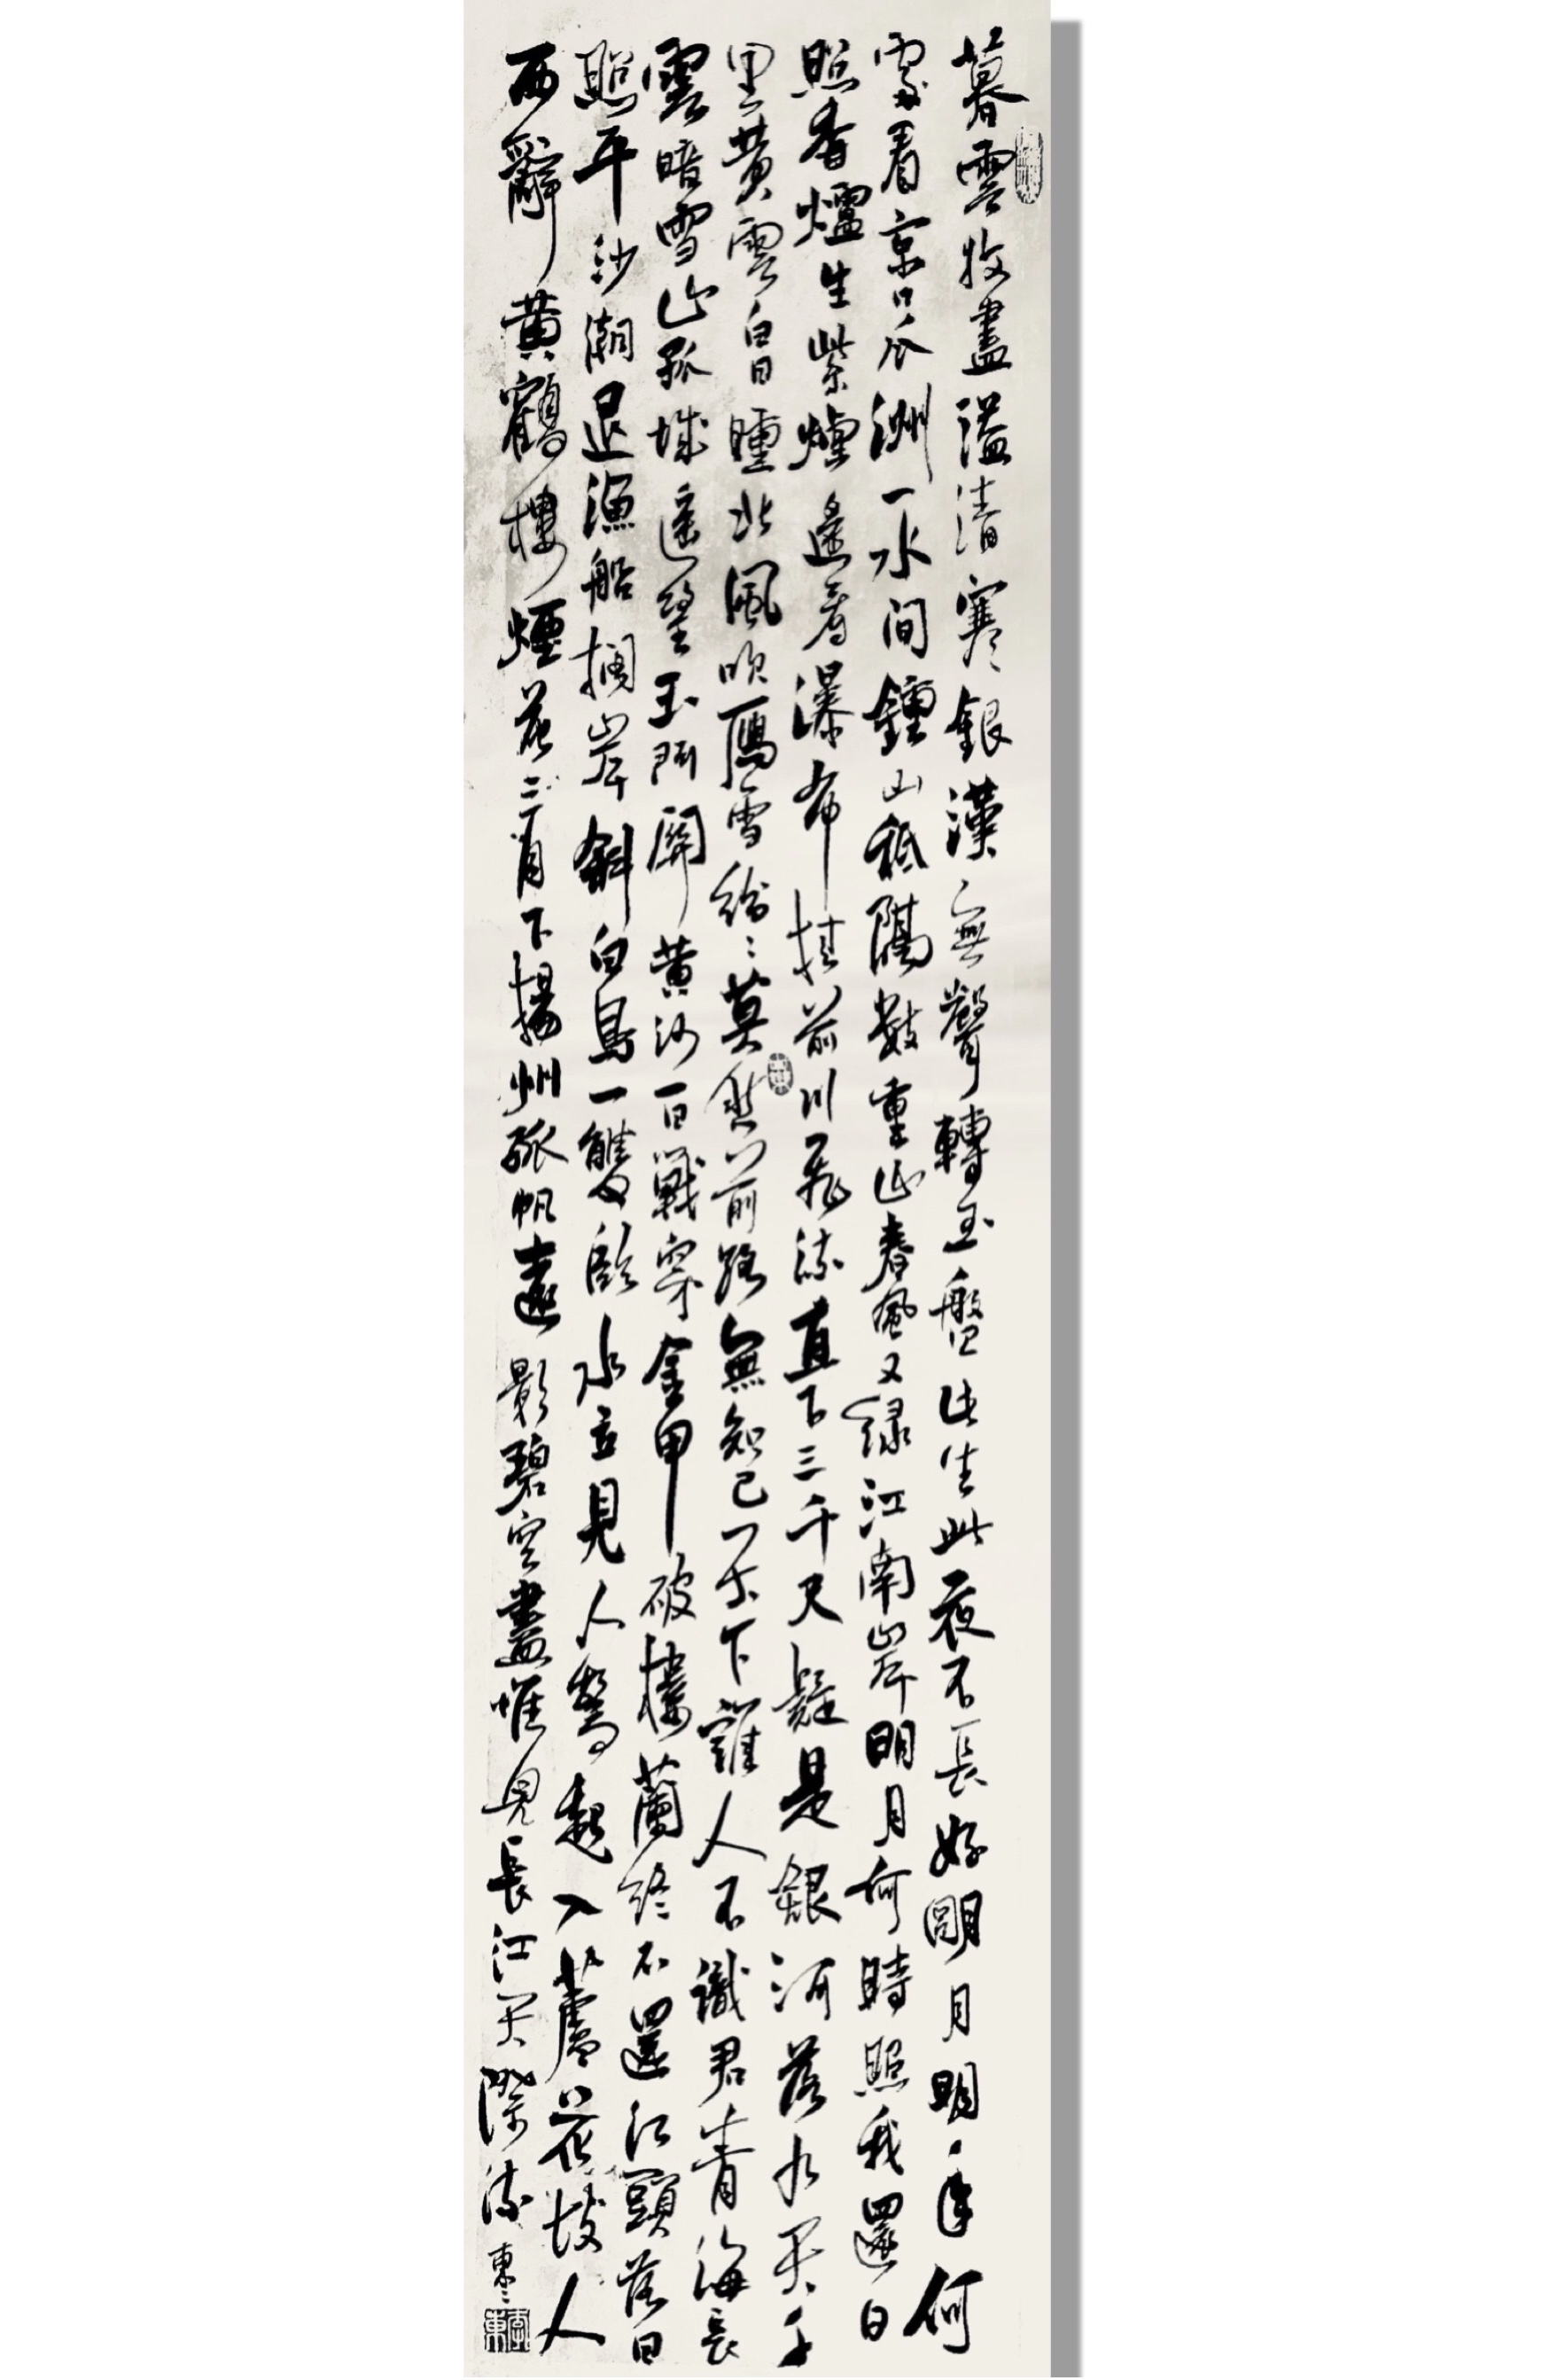 暮雲收盡溢清寒銀漢無聲轉玉盤此生此夜不長好明月明年何
處看京口瓜洲一水間鍾山秖隔數重山春風又綠江南岸明月何時照我還日
照香爐生紫煙遙看瀑布挂前川飛流直下三千尺疑是銀河落九天千
里黃雲白日曛北風吹鴈雪紛〻莫愁前路無知己天下誰人不識君青海長
雲暗雪山孤城遙望玉門關黃沙百戰穿金甲破樓蘭終不還江頭落日
照平沙潮退漁船擱岸斜白鳥一雙臨水立見人驚起入蘆花故人
西辭黃鶴樓煙花三月下揚州孤帆遠影碧空盡惟見長江天際流 東〻